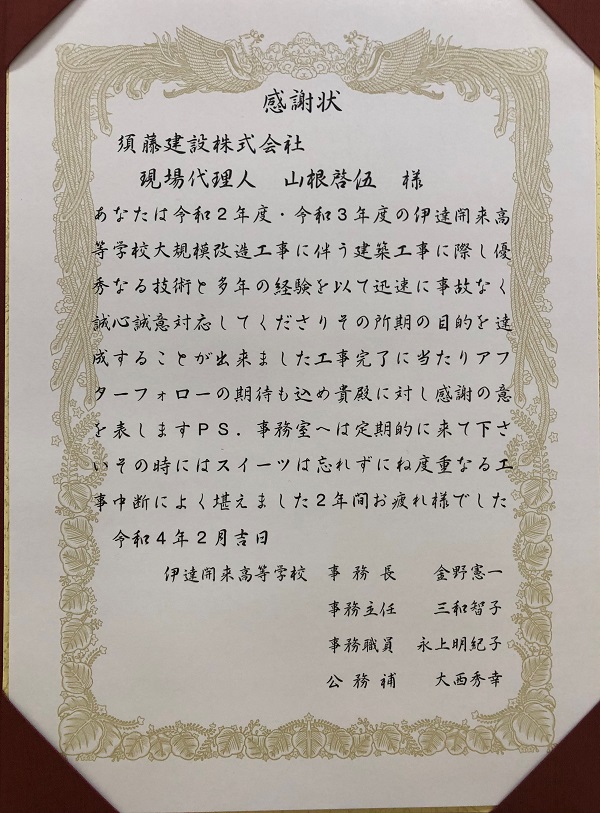 感謝状
須藤建設株式会社
現場代理人　山根啓伍　様
あなたは令和２年度・令和３年度の伊達開来高
等学校大規模改造工事に伴う建築工事に際し優
秀なる技術と多年の経験を以て迅速に事故なく
誠心誠意対応してくださりその所期の目的を達
成することが出来ました工事完了に当たりアフ
ターフォローの期待も込め貴殿に対し感謝の意
を表しますＰＳ．事務室へは定期的に来て下さ
いその時にはスイーツは忘れずにね度重なる工
事中断によく堪えました２年間お疲れ様でした
令和４年２月吉日
伊達開来高等学校　事務長　金野憲一
事務主任　三和智子
事務職員　永上明紀子
公務補　大西秀幸